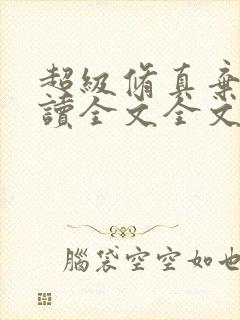 超級脩真棄
讀全文全文
腦袋空空如也